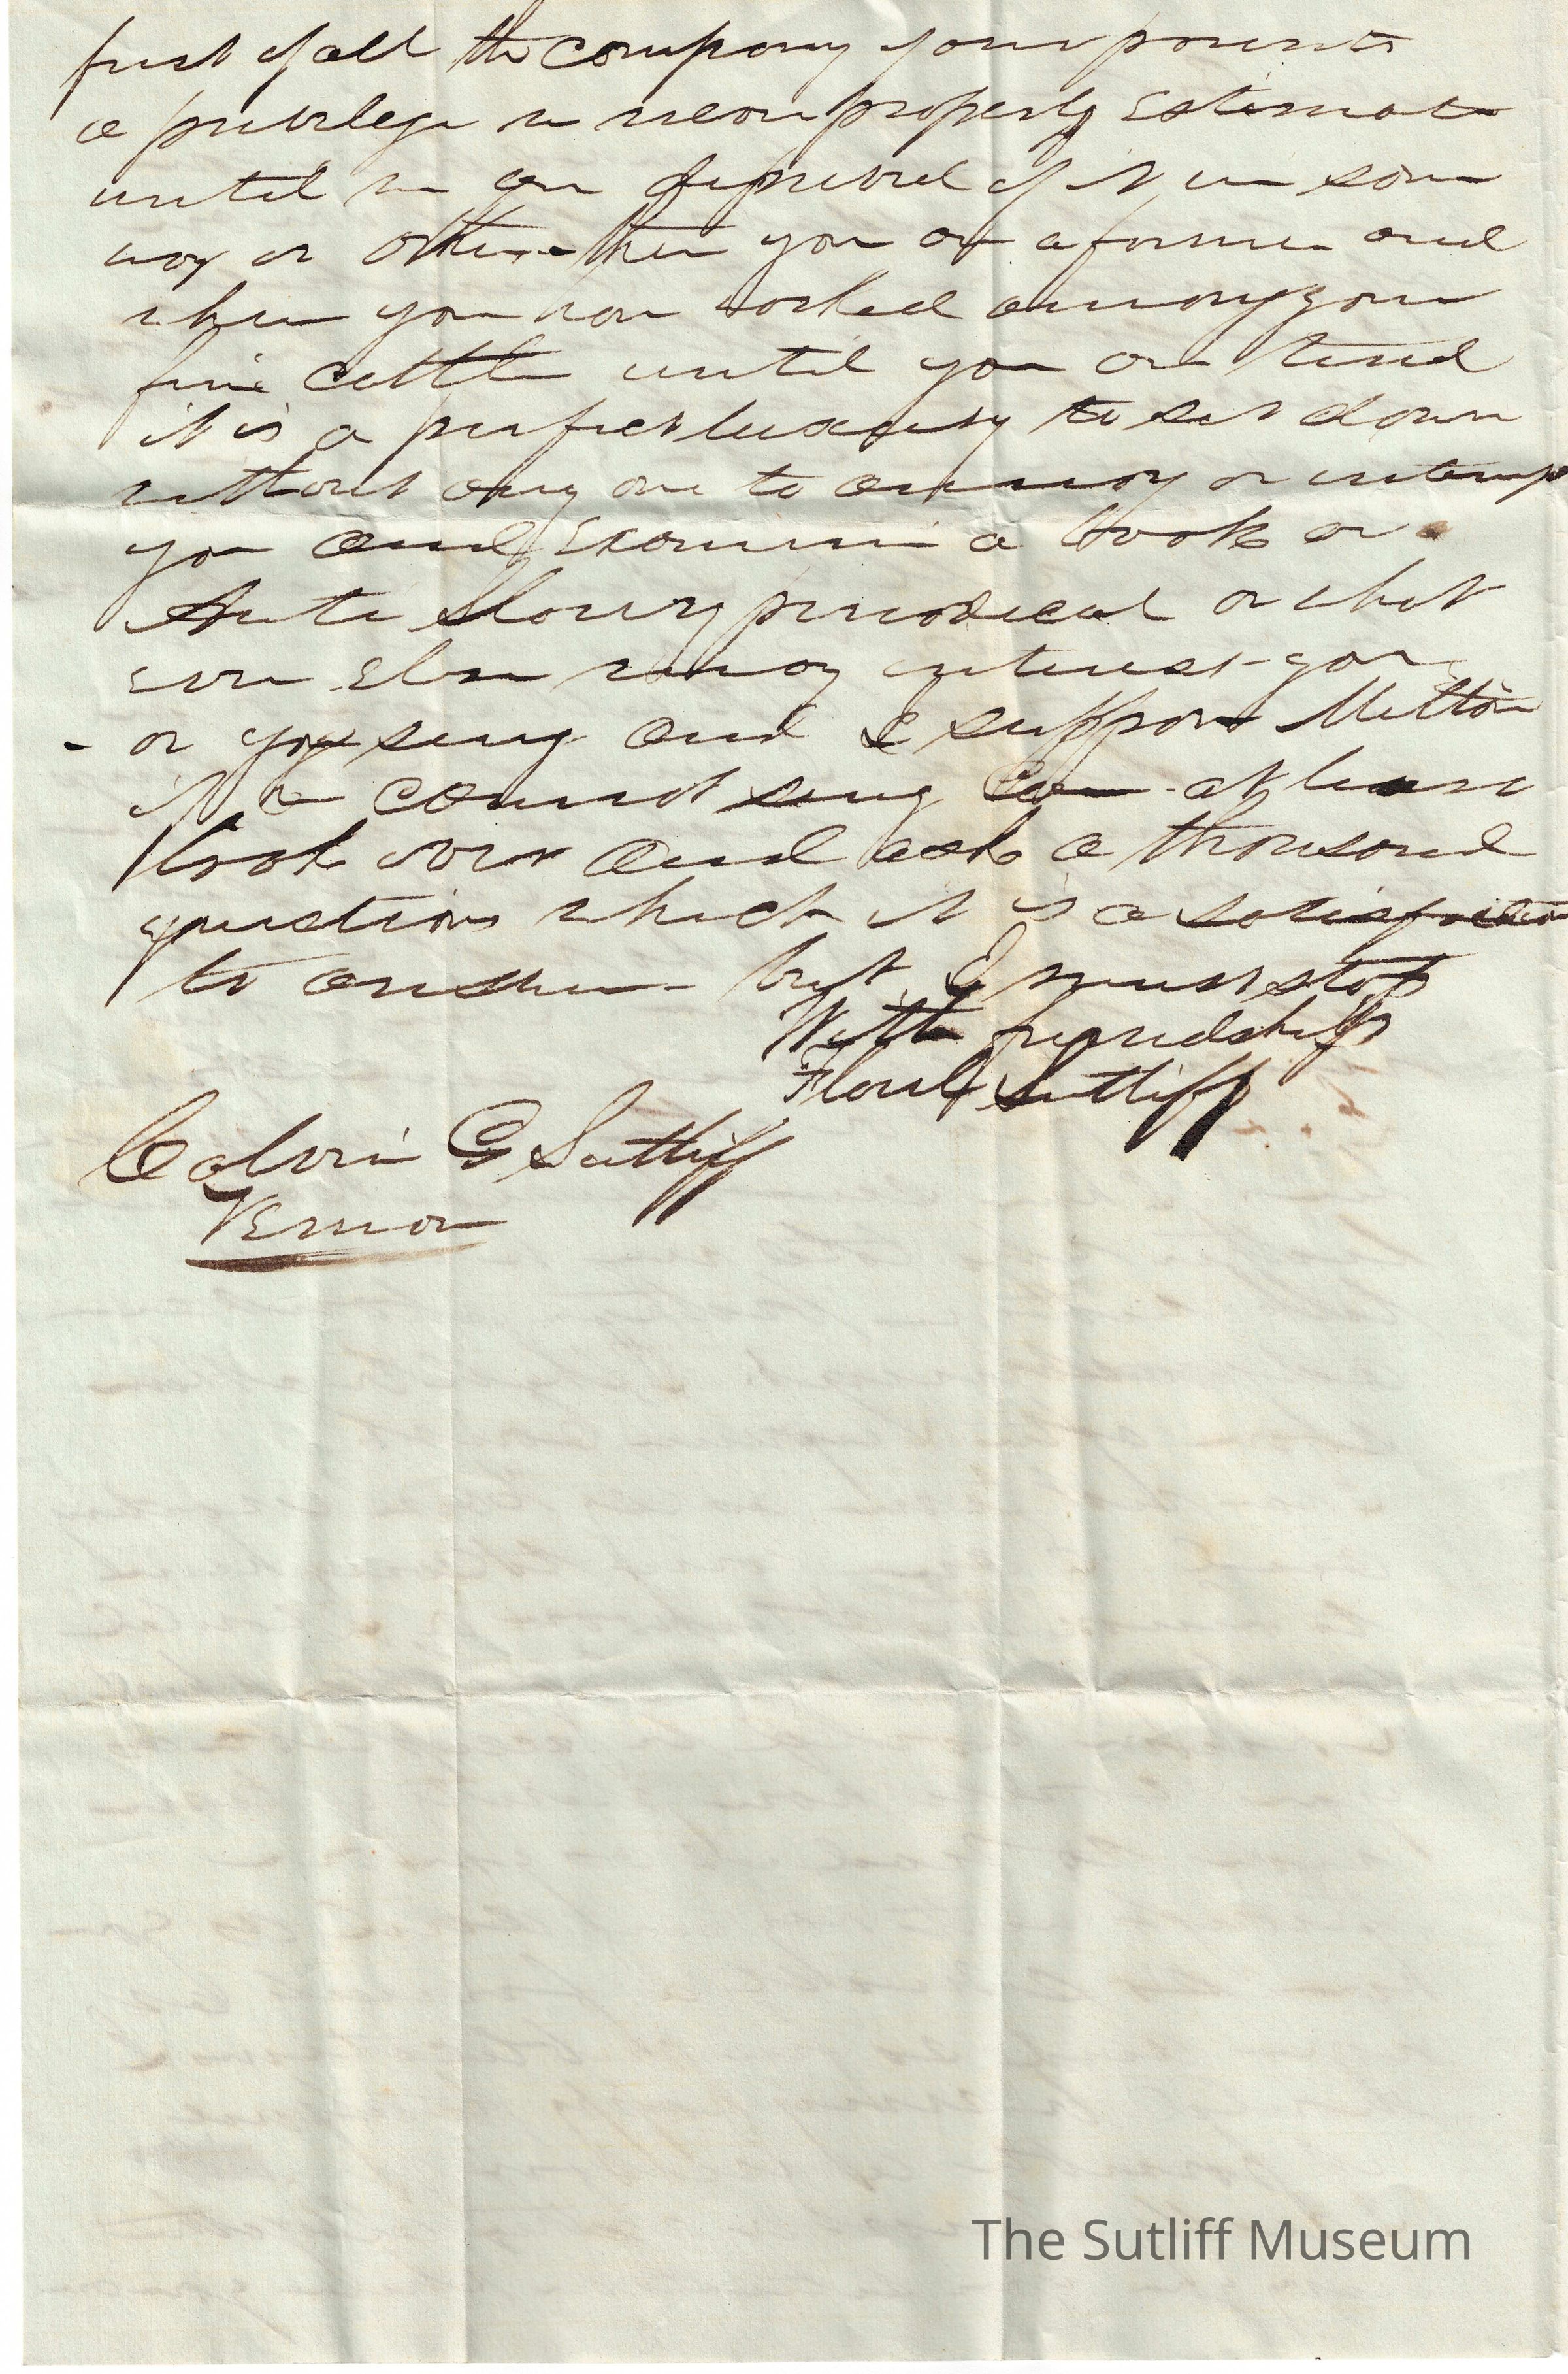 first of all the company your parents
a privilege we never properly estimate
until we are deprived of it in some
way or other - then you are a farmer and
when you have worked among your
fine cattle until you are tired
it is a perfect luxury to set down
without any one to annoy or interup
you and Examine a book or
Anti Slavery periodical or what
ever Else may interest you
- or you sing and I suppose Milton
if he cannot sing can at least
look over and ask a thousand
questions which it is a satisfaction
to answer - but I must stop
With friendship
Flavel Sutliff
Calvin G Sutliff
Vernon
The Sutliff Museum